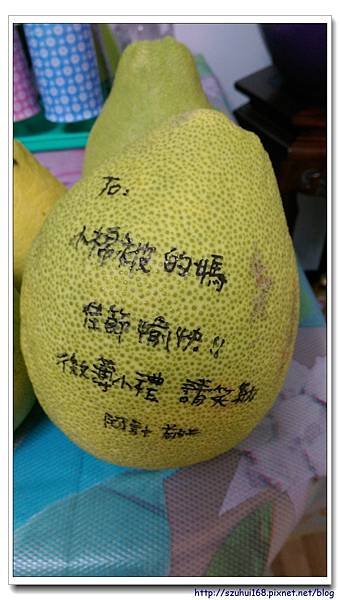 To:
小棉被的媽
佳節愉快!!
微薄小禮 請笑納
阿計
http://szuhui168.pixnet.net/blog